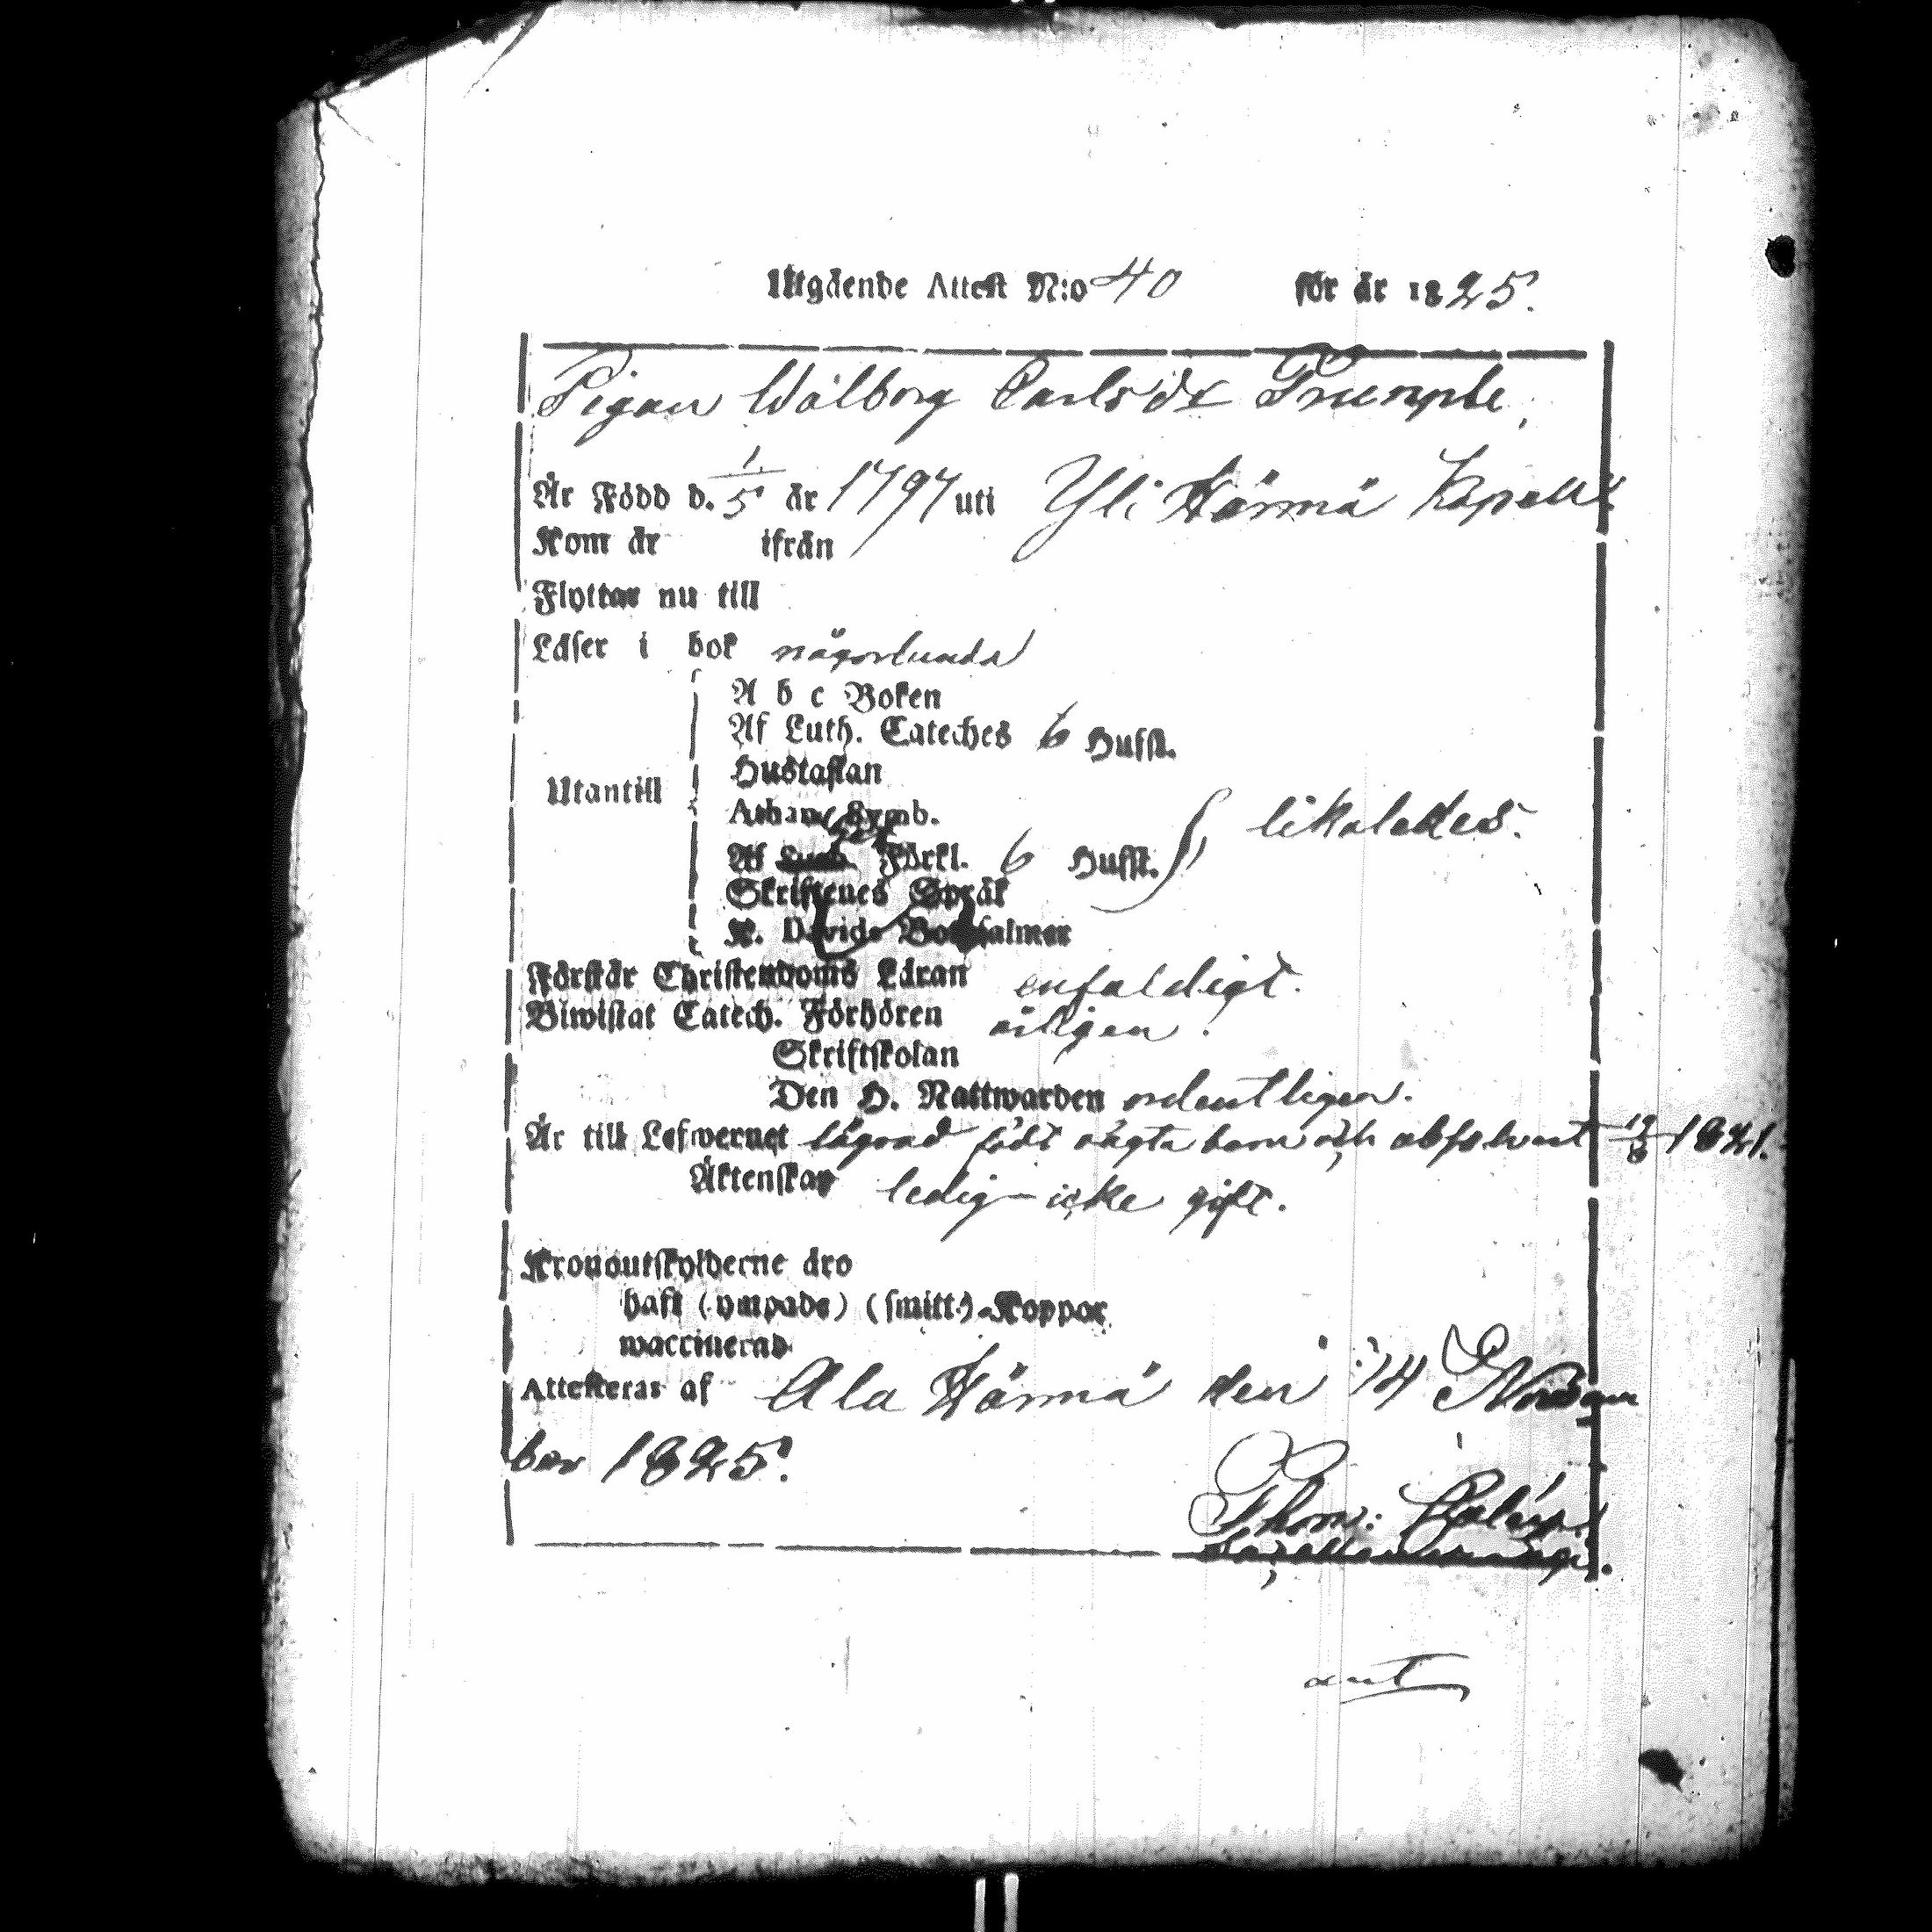 Utgående Attest N:o 40 för år 1825.
Pigan Walborg Carlsdr Trumpte,
År Född d. 1/5 år 1797 uti Yli Härmä Kapell
Kom år ifrån
Flyttar nu till
Läser i bok någorlunda
A b c Boken
Af Luth. Cateches 6 Hufst.
Hustaflan
Utantill
Athan. Symb.
likaledes.
Af Förkl. 6 Hufst.
Skriftenes Språk
K. Davids Botpsalmer
Förstår Christendoms Läran enfaldigt.
Biwistat Catech. Förhören årligen.
Skriftskolan
Den H. Nattwarden ordentligen.
Är till Lefwernet lägrad födt oägta barn och absolverat 1821.
Äktenskap ledig - icke gift.
Kronoutskylderne äro
haft (ympade) (smitt.) Koppor
waccinerad
Attesteras af Ala Härmä den 14 Novem
ber 1825.
Thom: